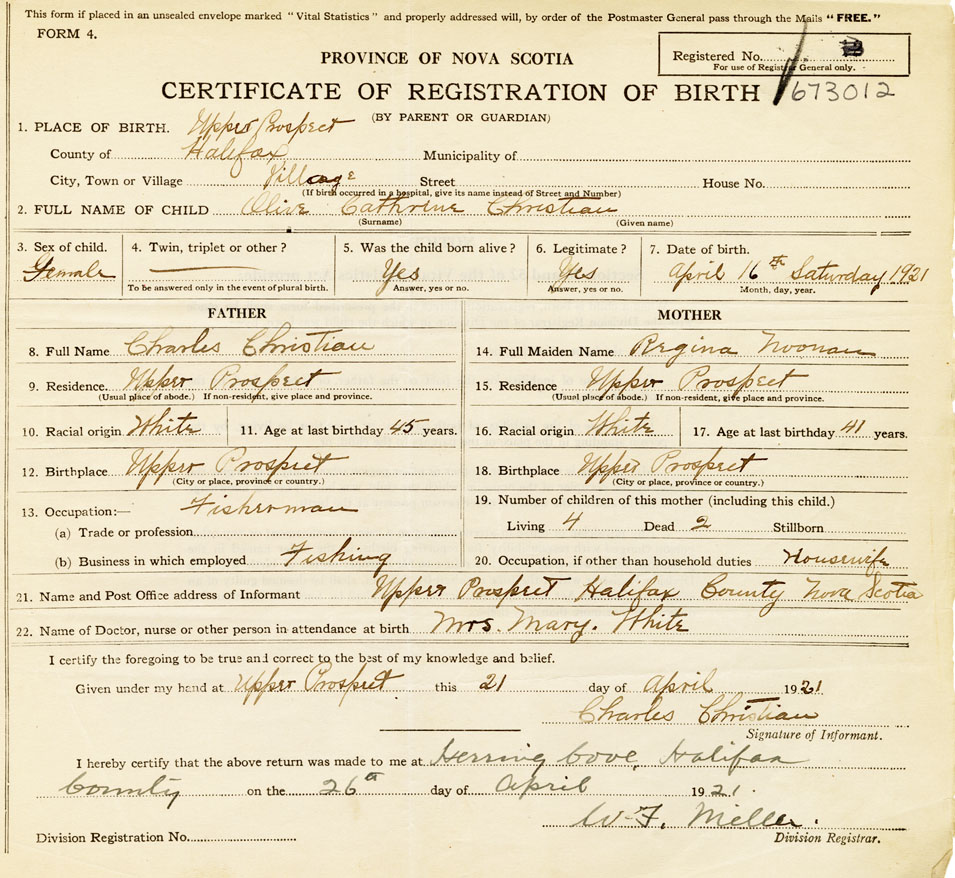 This form if placed in an unsealed envelope marked "Vital Statistics" and properly addressed will, by order of the Postmaster General pass through the Mails "FREE."
FORM 4.
Registered No.
For use of Registrar General only.
PROVINCE OF NOVA SCOTIA
CERTIFICATE OF REGISTRATION OF BIRTH 673012
(BY PARENT OR GUARDIAN)
1. PLACE OF BIRTH. Upper Prospect
County of Halifax Municipality of
City, Town or Village Village Street House No.
(If birth occurred in a hospital, give its name instead of Street and Number)
2. FULL NAME OF CHILD Olive Cathrine Christian
(Surname) (Given name)
3. Sex of child. 4. Twin, triplet or other? 5. Was the child born alive? 6. Legitimate? 7. Date of birth.
Female — Yes Yes April 16th Saturday 1921
To be answered only in the event of plural birth. Answer, yes or no. Answer, yes or no. Month, day, year.
FATHER
8. Full Name Charles Christian
9. Residence. Upper Prospect
(Usual place of abode.) If non-resident, give place and province.
10. Racial origin White 11. Age at last birthday 45 years.
12. Birthplace Upper Prospect
(City or place, province or country.)
13. Occupation:— Fisherman
(a) Trade or profession
(b) Business in which employed Fishing
MOTHER
14. Full Maiden Name Regina Noonan
15. Residence Upper Prospect
(Usual place of abode.) If non-resident, give place and province.
16. Racial origin White 17. Age at last birthday 41 years.
18. Birthplace Upper Prospect
(City or place, province or country.)
19. Number of children of this mother (including this child.)
Living 4 Dead 2 Stillborn
20. Occupation, if other than household duties Housewife
21. Name and Post Office address of Informant Upper Prospect Halifax County Nova Scotia
22. Name of Doctor, nurse or other person in attendance at birth Mrs. Mary. White
I certify the foregoing to be true and correct to the best of my knowledge and belief.
Given under my hand at Upper Prospect this 21 day of April 1921
Charles Christian
Signature of Informant.
I hereby certify that the above return was made to me at Herring Cove, Halifax
County on the 26th day of April 1921.
W. F. Miller.
Division Registration No. Division Registrar.